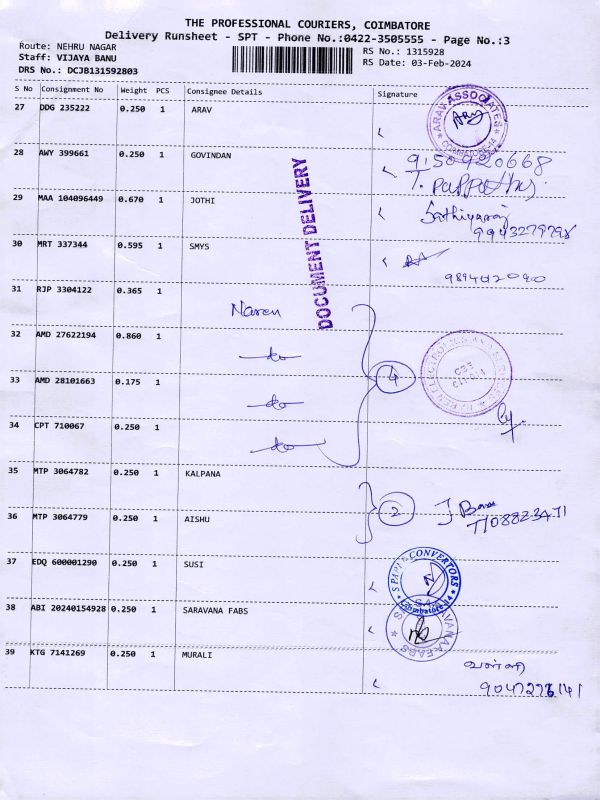 THE PROFESSIONAL COURIERS, COIMBATORE
Delivery Runsheet - SPT - Phone No.:0422-3505555 - Page No.:3
Route: NEHRU NAGAR RS No.: 1315928
Staff: VIJAYA BANU RS Date: 03-Feb-2024
DRS No.: DCJB131592803
S No Consignment No Weight PCS Consignee Details Signature
27 DDG 235222 0.250 1 ARAV
ARAV ASSOCIATES
28 AWY 399661 0.250 1 GOVINDAN
DOCUMENT DELIVERY
29 MAA 104096449 0.670 1 JOTHI
Sathiyaraj
30 MRT 337344 0.595 1 SMYS
31 RJP 3304122 0.365 1
Naren
32 AMD 27622194 0.860 1
do
4
33 AMD 28101663 0.175 1
do
34 CPT 710067 0.250 1
do
35 MTP 3064782 0.250 1 KALPANA
2
36 MTP 3064779 0.250 1 AISHU
37 EDQ 600001290 0.250 1 SUSI
38 ABI 20240154928 0.250 1 SARAVANA FABS
39 KTG 7141269 0.250 1 MURALI
வள்ளி